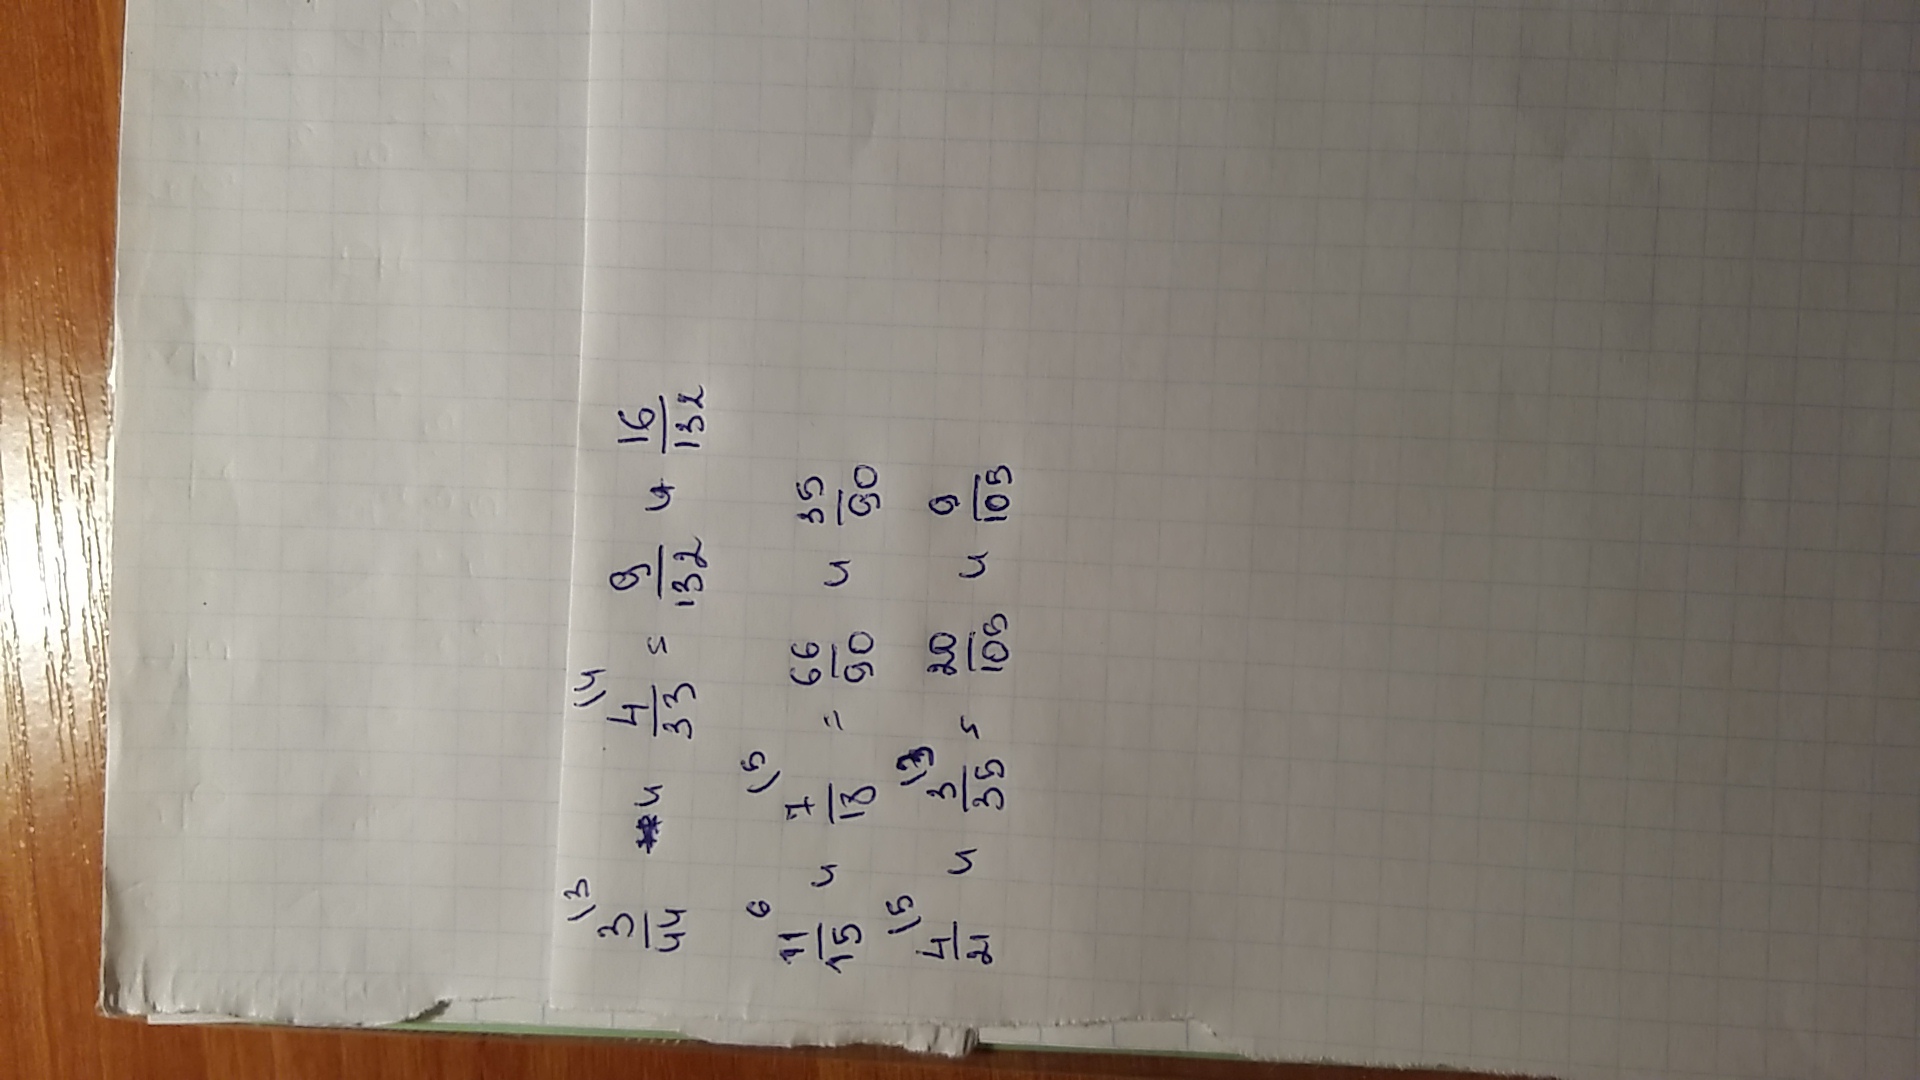 3/44 \3 и 4/33 \4 = 9/132 и 16/132
11/15 6 и 7/18 \5 = 66/90 и 35/90
4/21 \5 и 3/35 \3 = 20/105 и 9/105